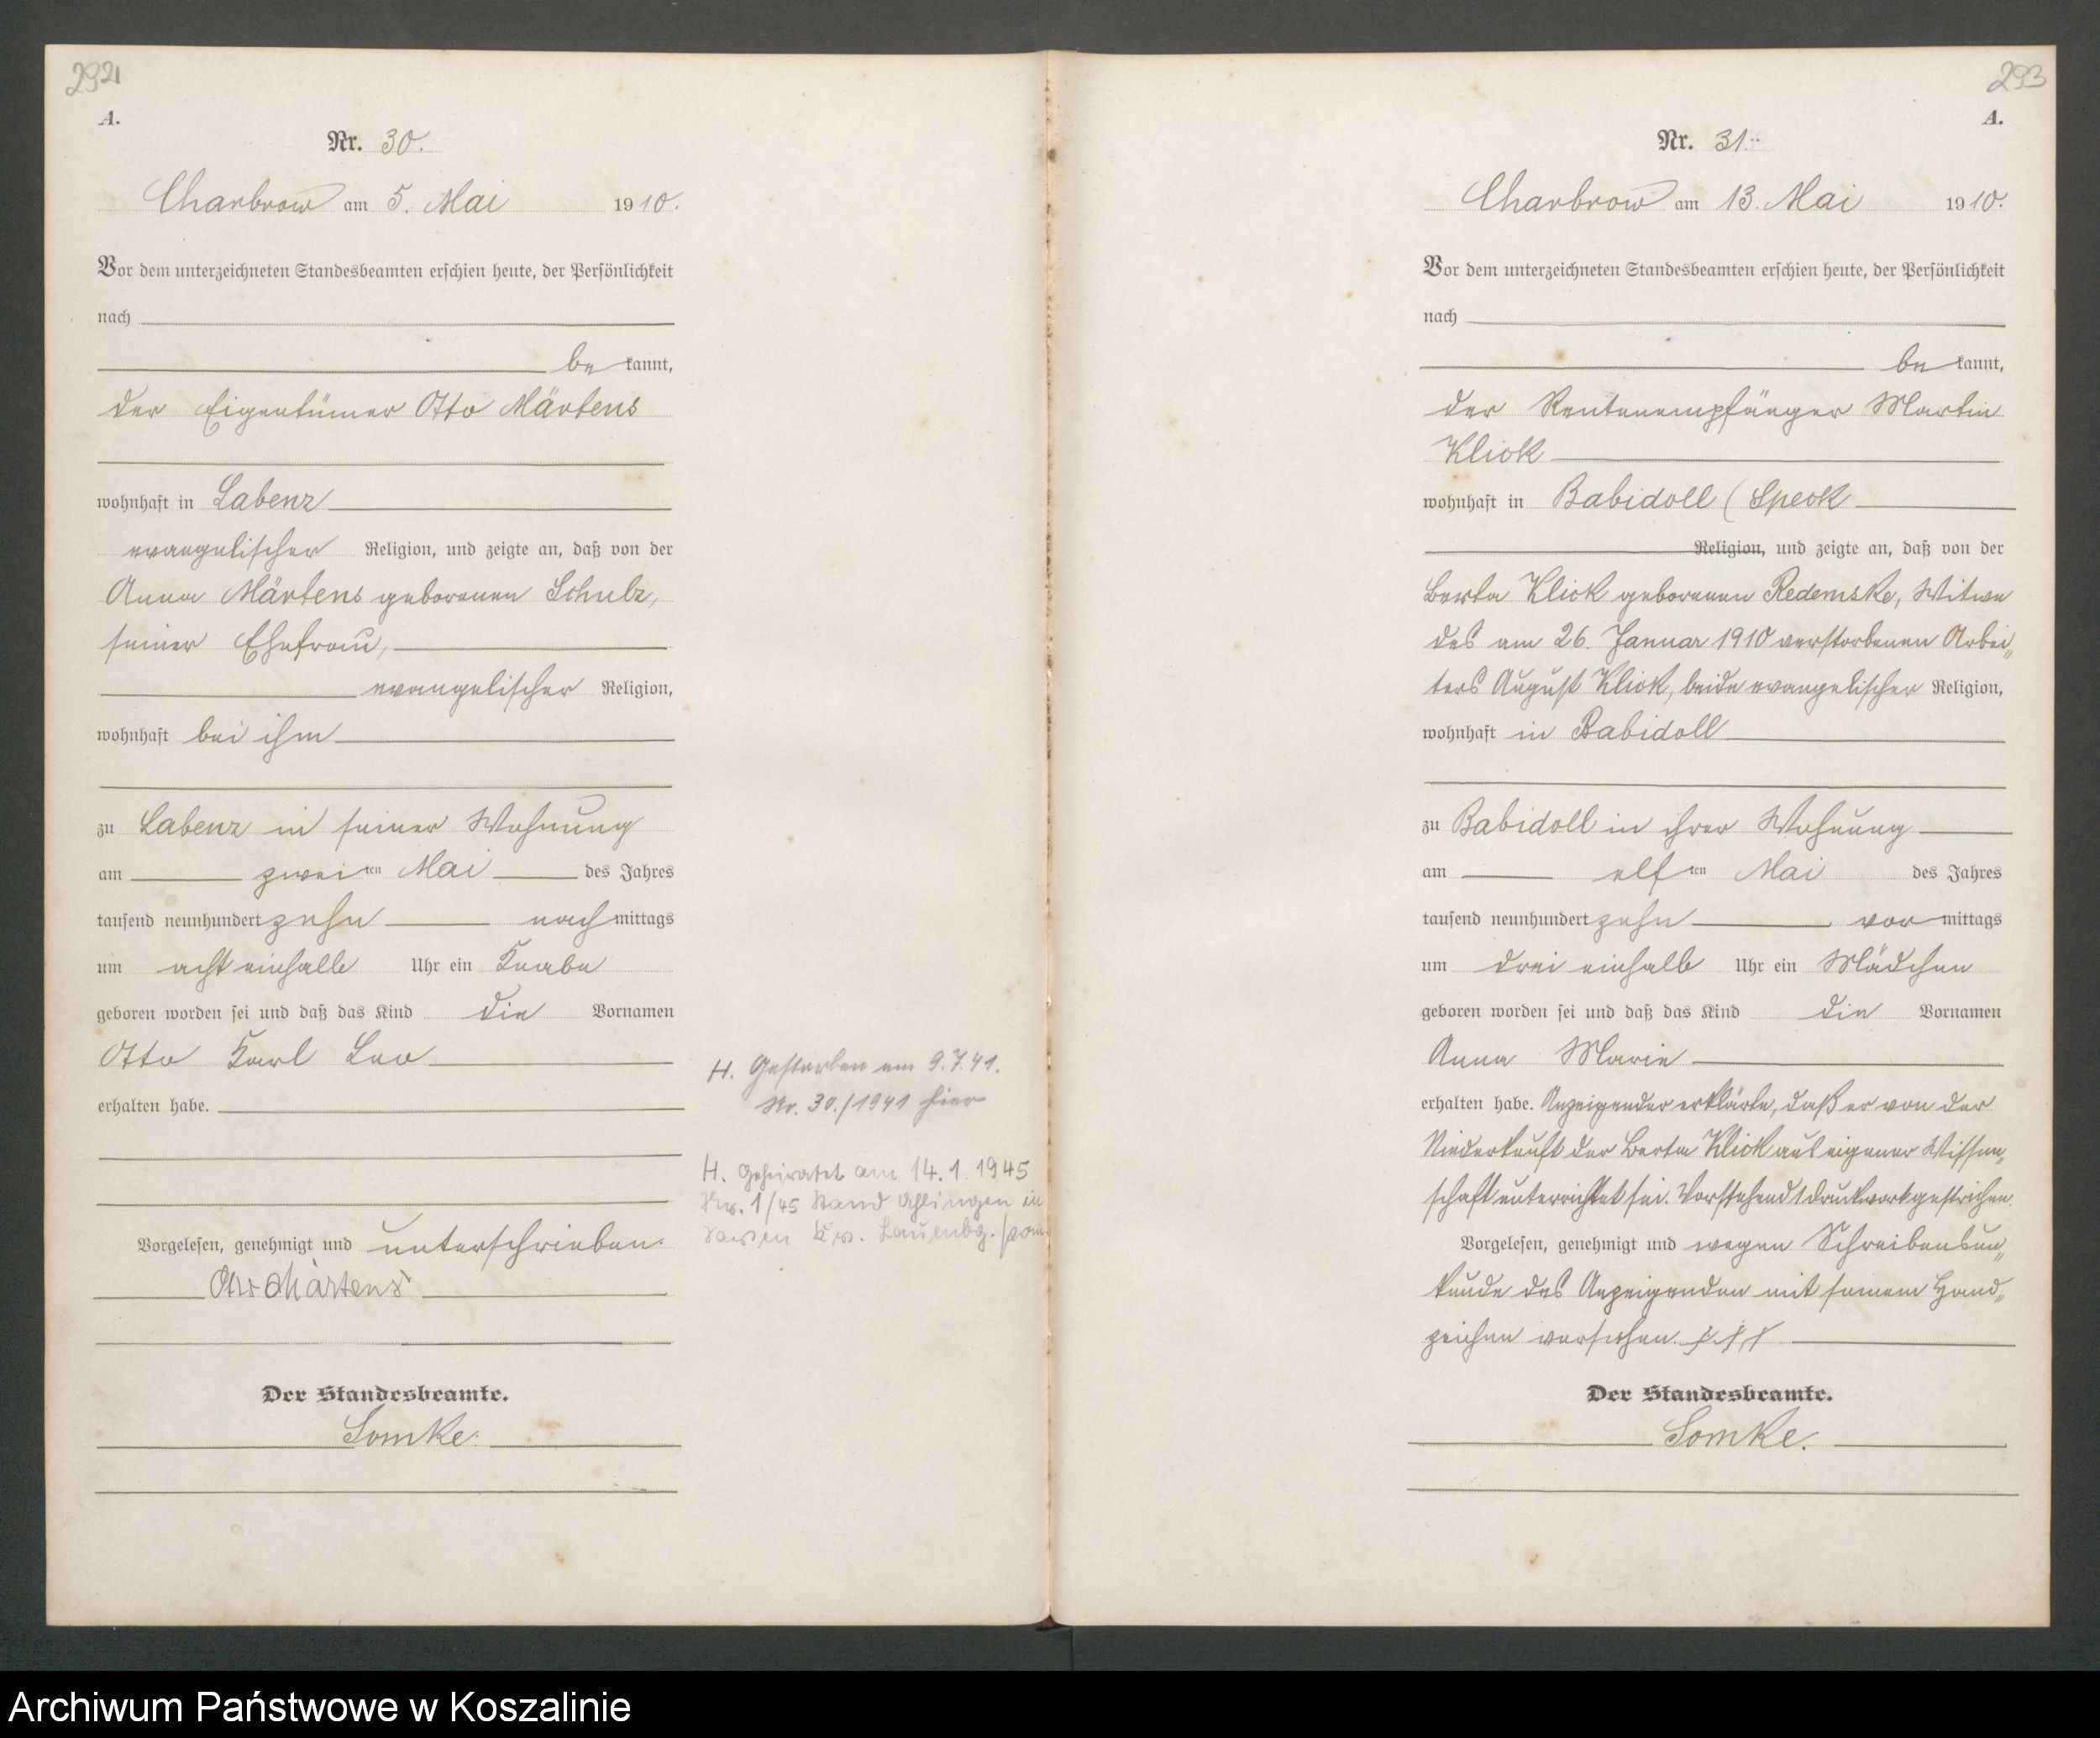 292
A.
Nr. 30.
Charbrow am 5. Mai 1910.
Vor dem unterzeichneten Standesbeamten erschien heute, der Persönlichkeit
nach
be kannt,
der Eigentümer Otto Märtens
wohnhaft in Labenz
evangelischer Religion, und zeigte an, daß von der
Anna Märtens geborenen Schulz,
seiner Ehefrau,
evangelischer Religion,
wohnhaft bei ihm
zu Labenz in seiner Wohnung
am zweiten Mai des Jahres
tausend neunhundert zehn nach mittags
um acht einhalb Uhr ein Knabe
geboren worden sei und daß das Kind die Vornamen
Otto Karl Leo
erhalten habe.
Vorgelesen, genehmigt und unterschrieben.
Otto Märtens
Der Standesbeamte.
Somke.
H. Gestorben am 9.7.41.
Nr. 30./1941 hier
H. Geheiratet am 14.1.1945
Nr. 1/45 Stand in
Kr. Lauenbg./pom.
293
A.
Nr. 31.
Charbrow am 13. Mai 1910.
Vor dem unterzeichneten Standesbeamten erschien heute, der Persönlichkeit
nach
be kannt,
der Rentenempfänger Martin
Klick
wohnhaft in Babidoll (Speck
Religion, und zeigte an, daß von der
Berta Klick geborenen Redemske, Witwe
des am 26. Januar 1910 verstorbenen Arbei„
ters August Klick, beide evangelischer Religion,
wohnhaft in Babidoll
zu Babidoll in ihrer Wohnung
am elften Mai des Jahres
tausend neunhundert zehn vor mittags
um drei einhalb Uhr ein Mädchen
geboren worden sei und daß das Kind die Vornamen
Anna Marie
erhalten habe. Anzeigender erklärte, daß er von der
Niederkunft der Berta Klick aus eigener Wissen„
schaft unterrichtet sei. Vorstehend 1 Druckwort gestrichen.
Vorgelesen, genehmigt und wegen Schreibensun„
kunde des Anzeigenden mit seinem Hand„
zeichen versehen. † † †
Der Standesbeamte.
Somke.
Archiwum Państwowe w Koszalinie